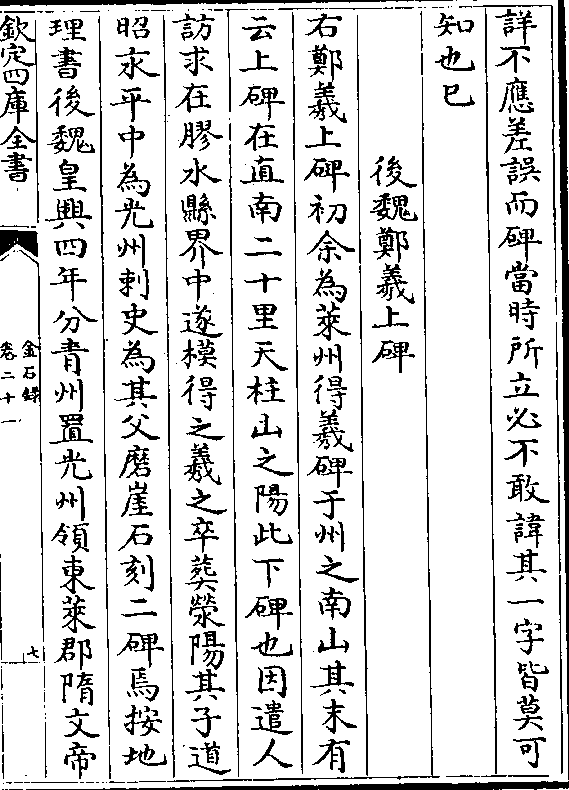 詳不應差誤而碑當時所立必不敢諱其一字皆莫可
知也已
後魏鄭羲上碑
右鄭羲上碑初余為萊州得羲碑于州之南山其末有
云上碑在直南二十里天柱山之陽此下碑也因遣人
訪求在膠水縣界中遂模得之羲之卒葬滎陽其子道
昭永平中為光州刺史為其父磨崖石刻二碑焉按地
理書後魏皇興四年分青州置光州領東萊郡隋文帝
欽定四庫全書
金石錄
卷二十一
七